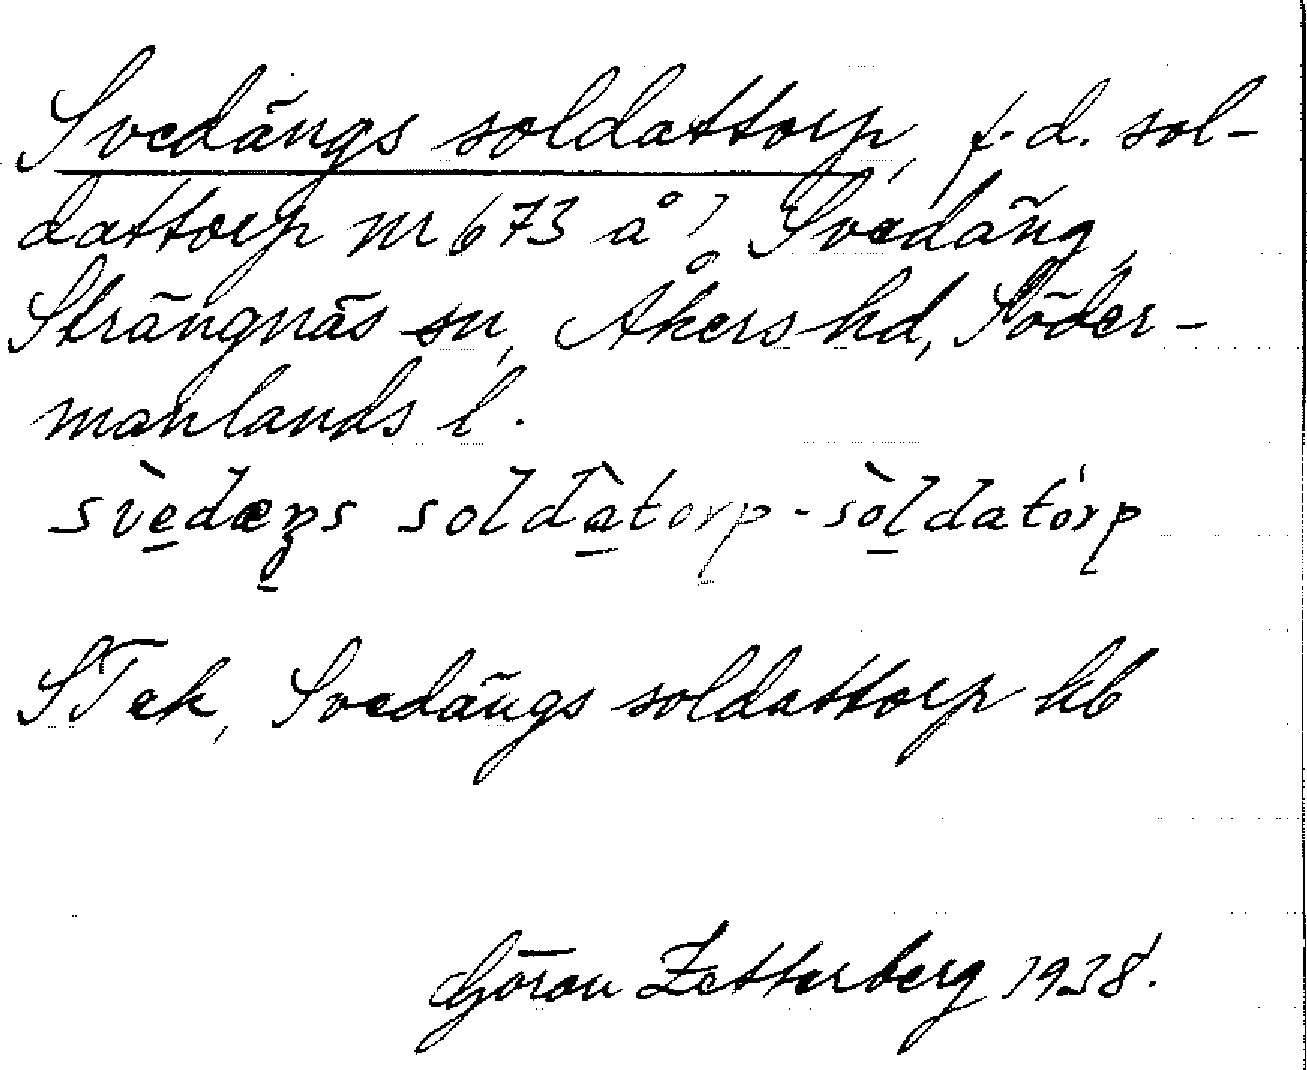 Svedängs soldattorp, f.d. sol-
dattorp nr 673 å 1 Svedäng,
Strängnäs sn, Åkers hd, Söder-
manlands l.
svèdæŋs soldàtorp - sòldatórp
STek, Svedängs soldattorp hb
Göran Zetterberg 1938.